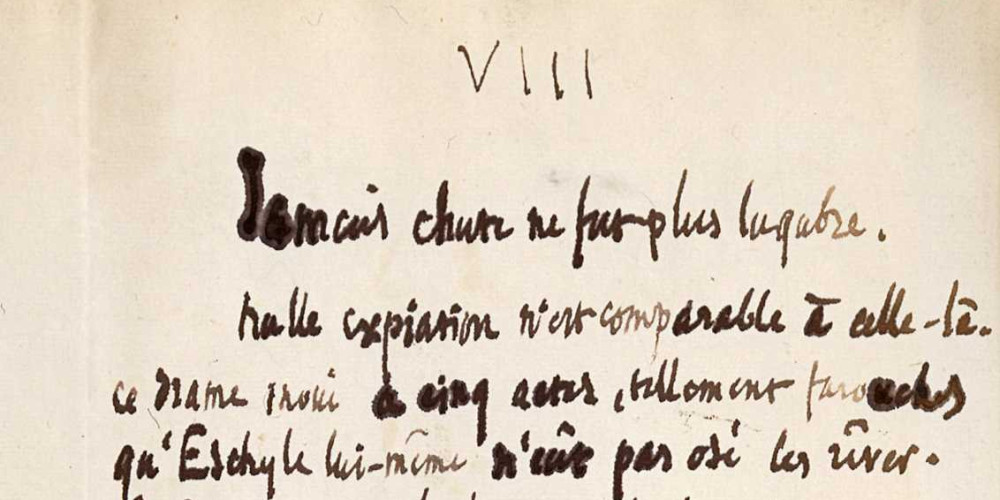 VIII
Jamais chute ne fut plus lugubre.
Nulle expiation n'est comparable à celle-là.
ce drame inouï a cinq actes, tellement farouches
qu'Eschyle lui-même n'eût pas osé les rêver.